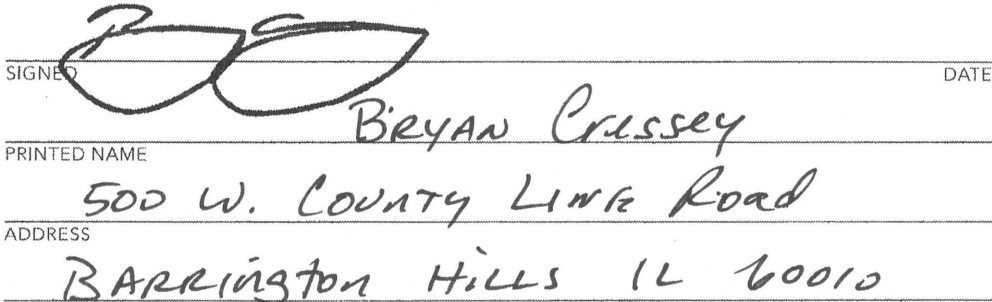 BC
SIGNED DATE
BRYAN Cressey
PRINTED NAME
500 W. County Line Road
ADDRESS
BARRington Hills IL 60010